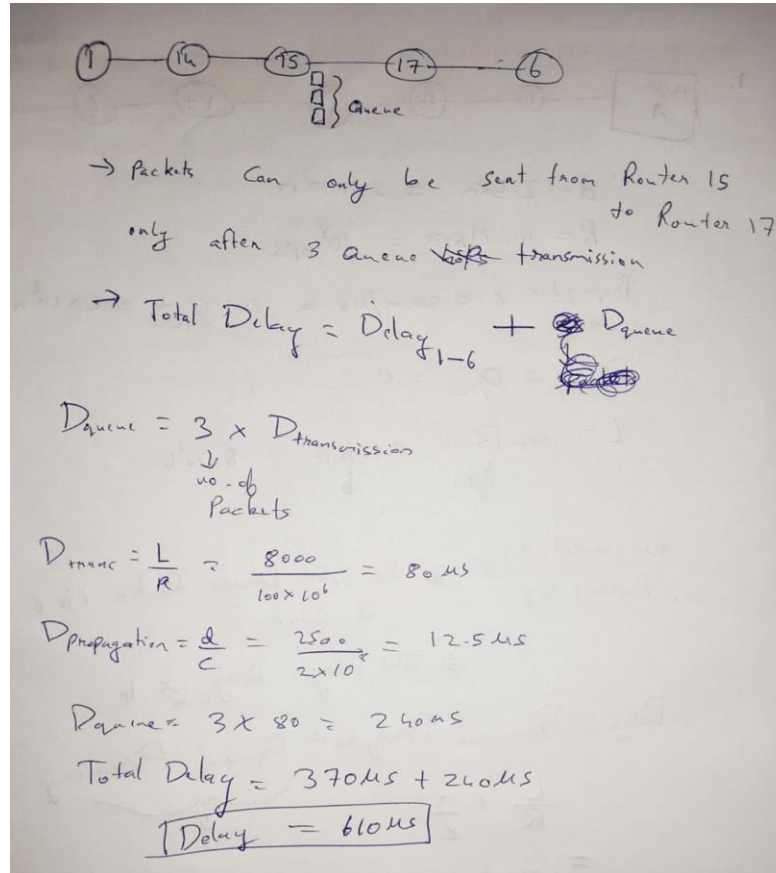 1 14 15 17 6
} Queue
→ Packets Can only be sent from Router 15
to Router 17
only after 3 Queue transmission
→ Total Delay = Delay 1-6 + Dqueue
Dqueue = 3 x Dtransmission
↓
no. of
Packets
Dtrans = L/R = 8000/100x10⁶ = 80 μs
Dpropagation = d/c = 2500/2x10⁸ = 12.5 μs
Dqueue = 3 x 80 = 240 μs
Total Delay = 370 μs + 240 μs
Delay = 610 μs